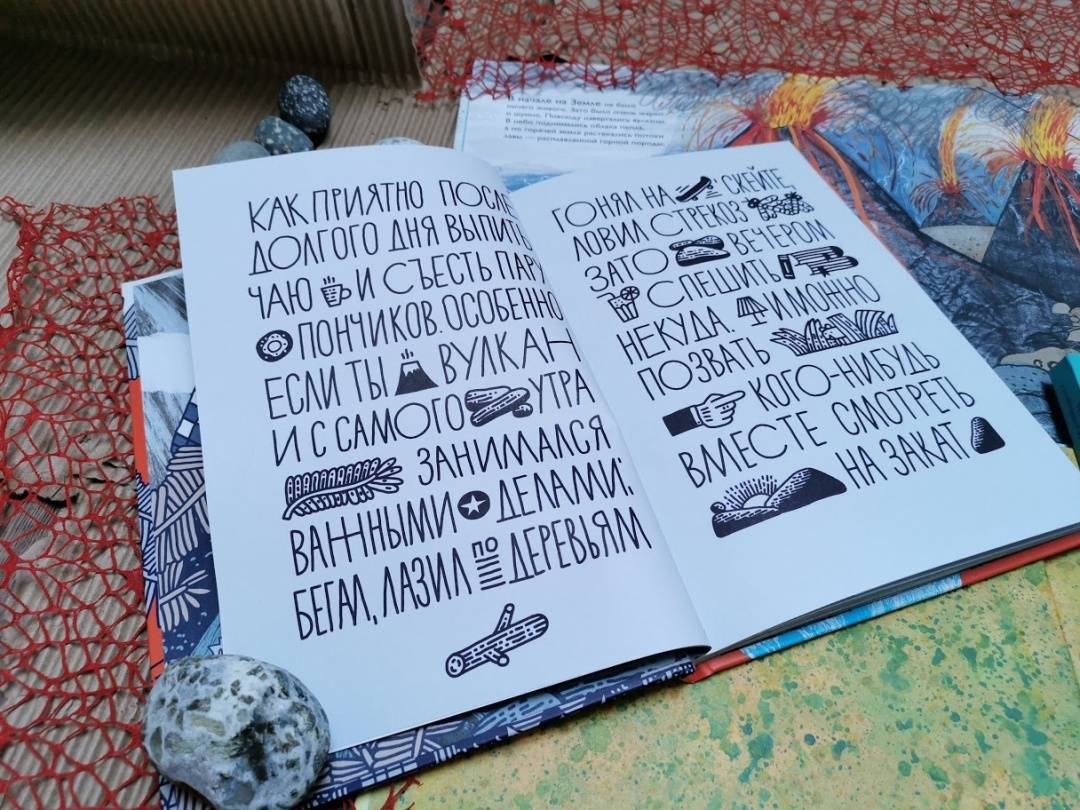 В начале на Земле не было
ничего живого. Зато было очень жарко
и шумно. Повсюду извергались вулканы.
В небо поднимались облака пепла,
а по горячей земле растекались потоки
лавы — расплавленной горной породы.
КАК ПРИЯТНО ПОСЛЕ
ДОЛГОГО ДНЯ ВЫПИТЬ
ЧАЮ И СЪЕСТЬ ПАРУ
ПОНЧИКОВ. ОСОБЕННО,
ЕСЛИ ТЫ ВУЛКАН
И С САМОГО УТРА
ЗАНИМАЛСЯ
ВАЖНЫМИ ДЕЛАМИ:
БЕГАЛ, ЛАЗИЛ ПО ДЕРЕВЬЯМ
ГОНЯЛ НА СКЕЙТЕ,
ЛОВИЛ СТРЕКОЗ
ЗАТО ВЕЧЕРОМ
СПЕШИТЬ
НЕКУДА. И МОЖНО
ПОЗВАТЬ
КОГО-НИБУДЬ
ВМЕСТЕ СМОТРЕТЬ
НА ЗАКАТ